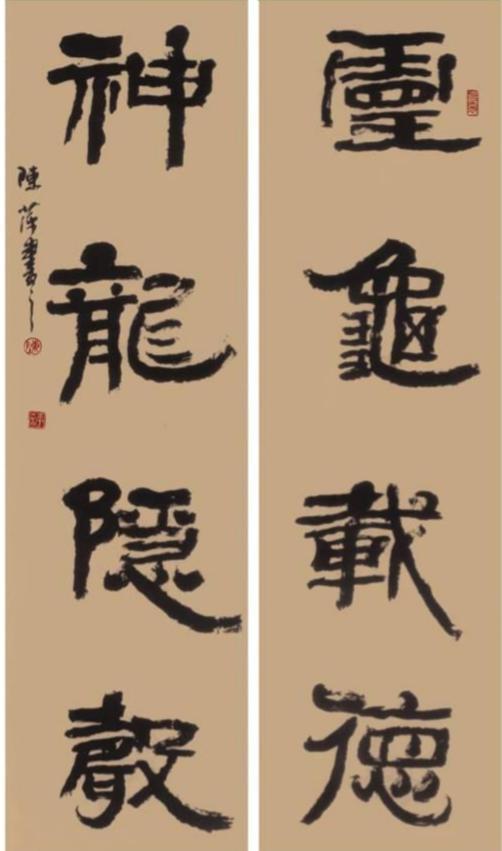 靈龜載德
神龍隱聲
陳萍書之